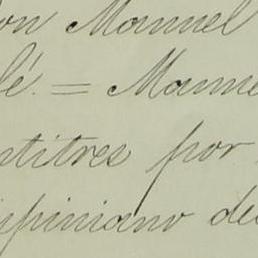 on Manuel
lé. = Manue
ntitres por
spiniano de